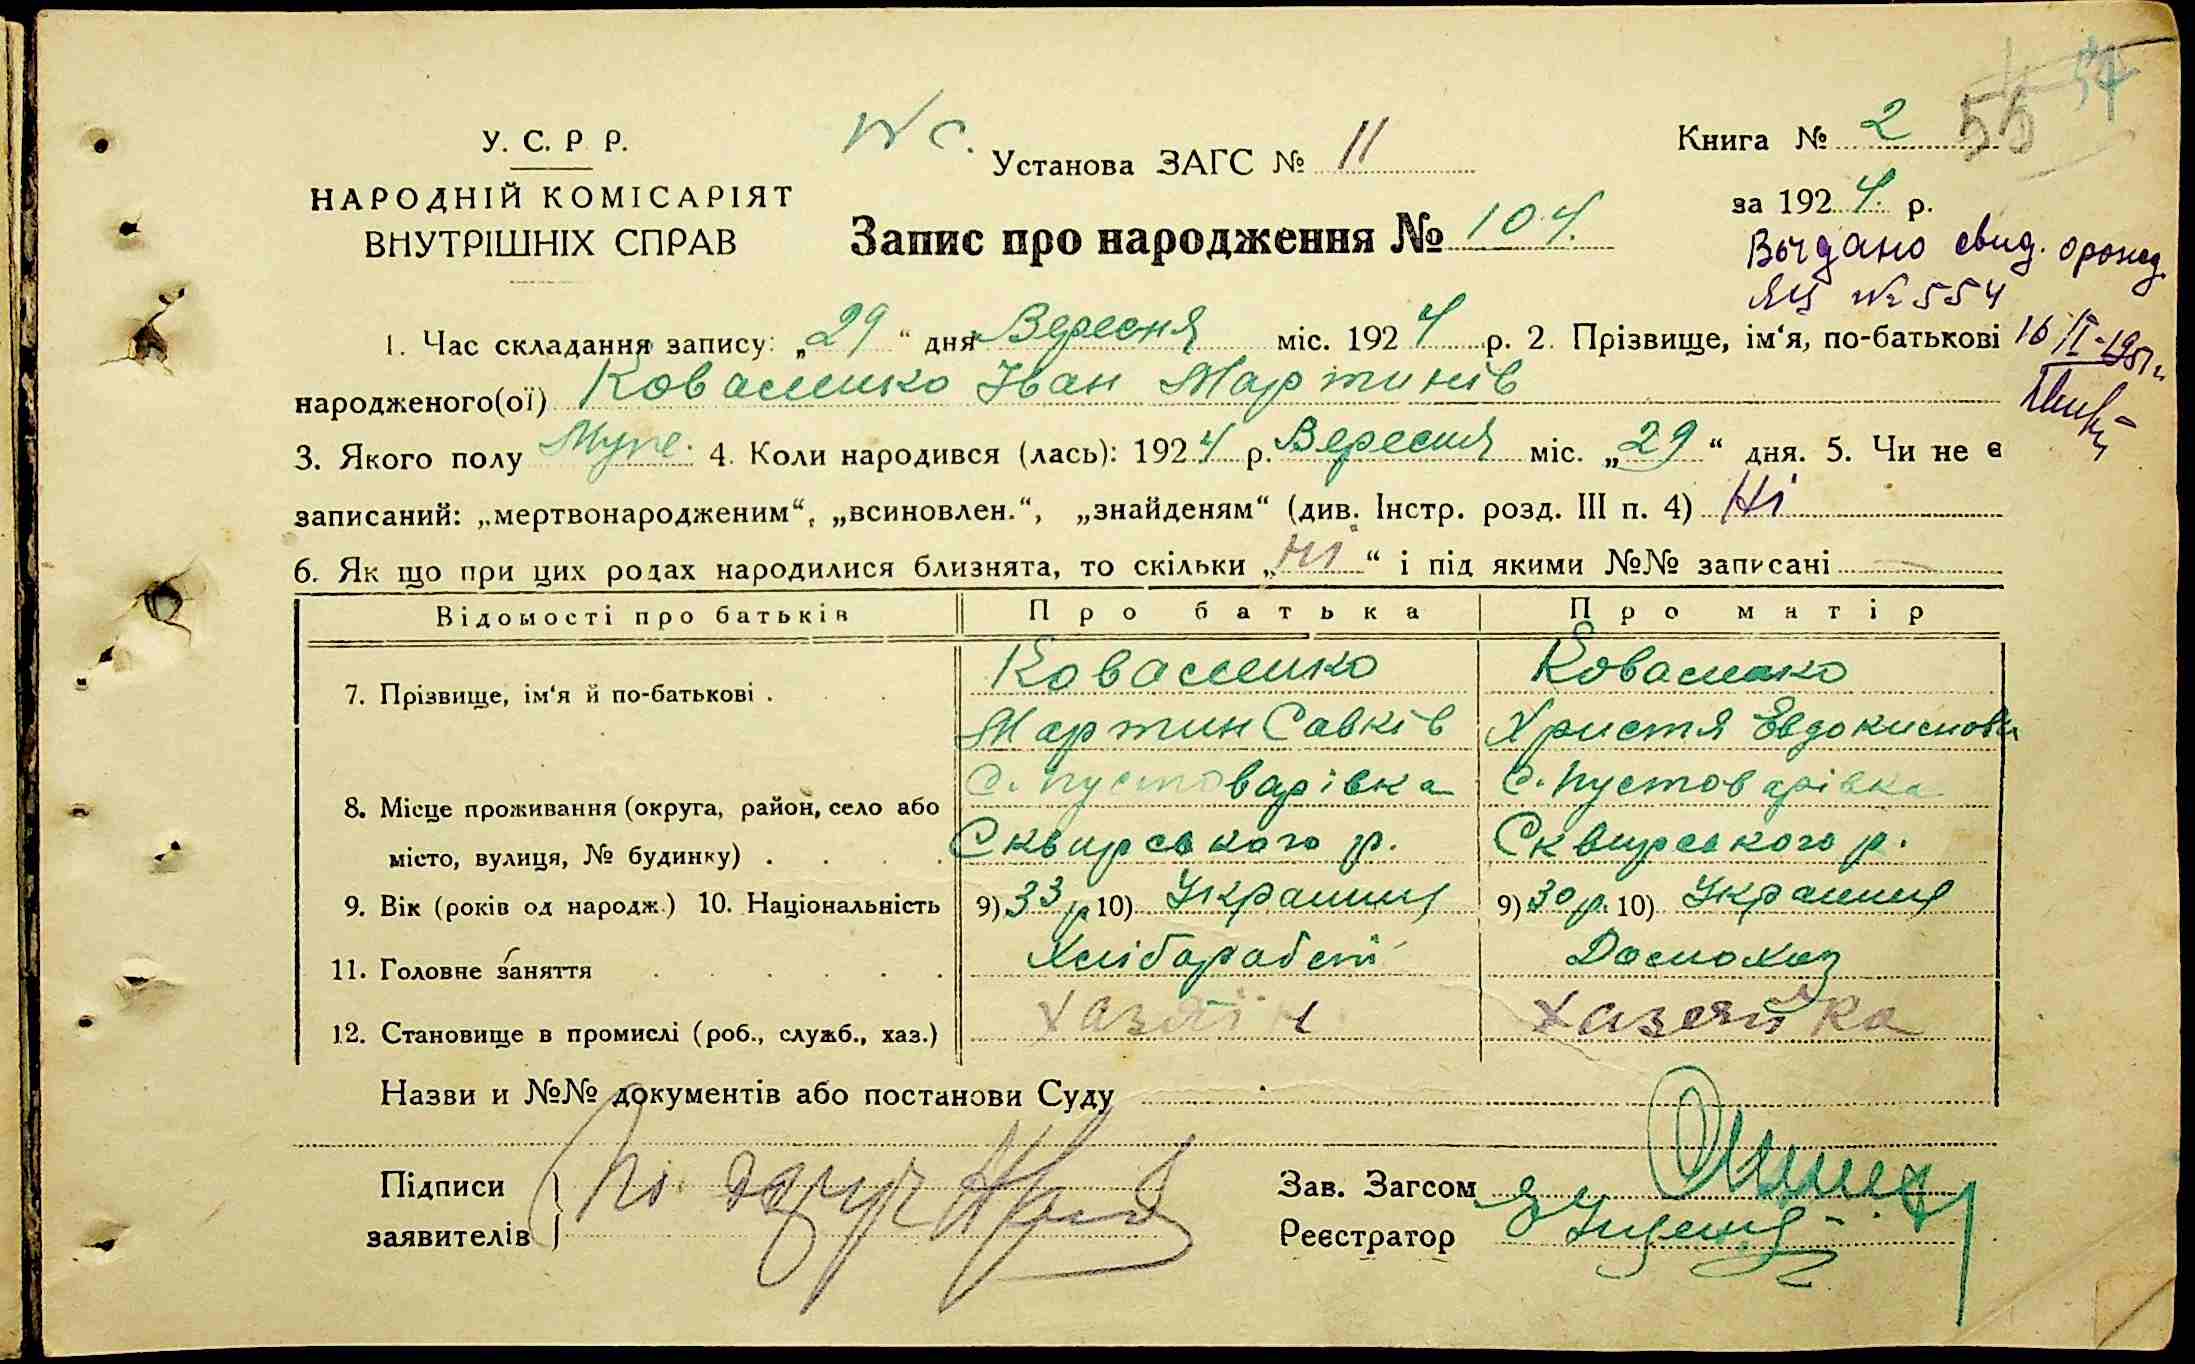 55 54
У. С. Р Р.
НАРОДНІЙ КОМІСАРІЯТ
ВНУТРІШНІХ СПРАВ
Установа ЗАГС № 11
Запис про народження № 104.
Книга № 2
за 1924. р.
Выдано свид. о рожд.
ЯЦ № 554
16/II-1951г
1. Час складання запису: „29“ дня Вересня міс. 1924 р. 2. Прізвище, ім‘я, по-батькові
народженого(ої) Коваленко Іван Мартинів
3. Якого полу Муже. 4. Коли народився (лась): 1924 р. Вересня міс. „29“ дня. 5. Чи не є
записаний: „мертвонародженим“, „всиновлен.“, „знайденям“ (див. Інстр. розд. III п. 4) Ні
6. Як що при цих родах народилися близнята, то скільки „ні“ і під якими №№ записані
Відомості про батьків Про батька Про матір
7. Прізвище, ім‘я й по-батькові . Коваленко Коваленко
Мартин Савків Христя Евдокимова
С. Пустоварівка С. Пустоварівка
8. Місце проживання (округа, район, село або
місто, вулиця, № будинку) . Сквирського р. Сквирського р.
9. Вік (років од народж.) 10. Національність 9) 33 р 10) Украинец 9) 30 р. 10) Украинец
11. Головне заняття Хлібороб Домохаз
12. Становище в промислі (роб., служб., хаз.) хазяїн хазяйка
Назви и №№ документів або постанови Суду
Підписи
заявителів
По доруч
Зав. Загсом
Реєстратор